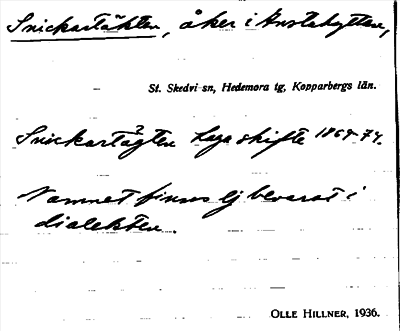 Snickartäkten, åker i Anstahyttan,
St. Skedvi sn, Hedemora tg, Kopparbergs län.
Snickartägten Laga skifte 1869-74.
Namnet finns ej bevarat i
dialekten.
OLLE HILLNER, 1936.